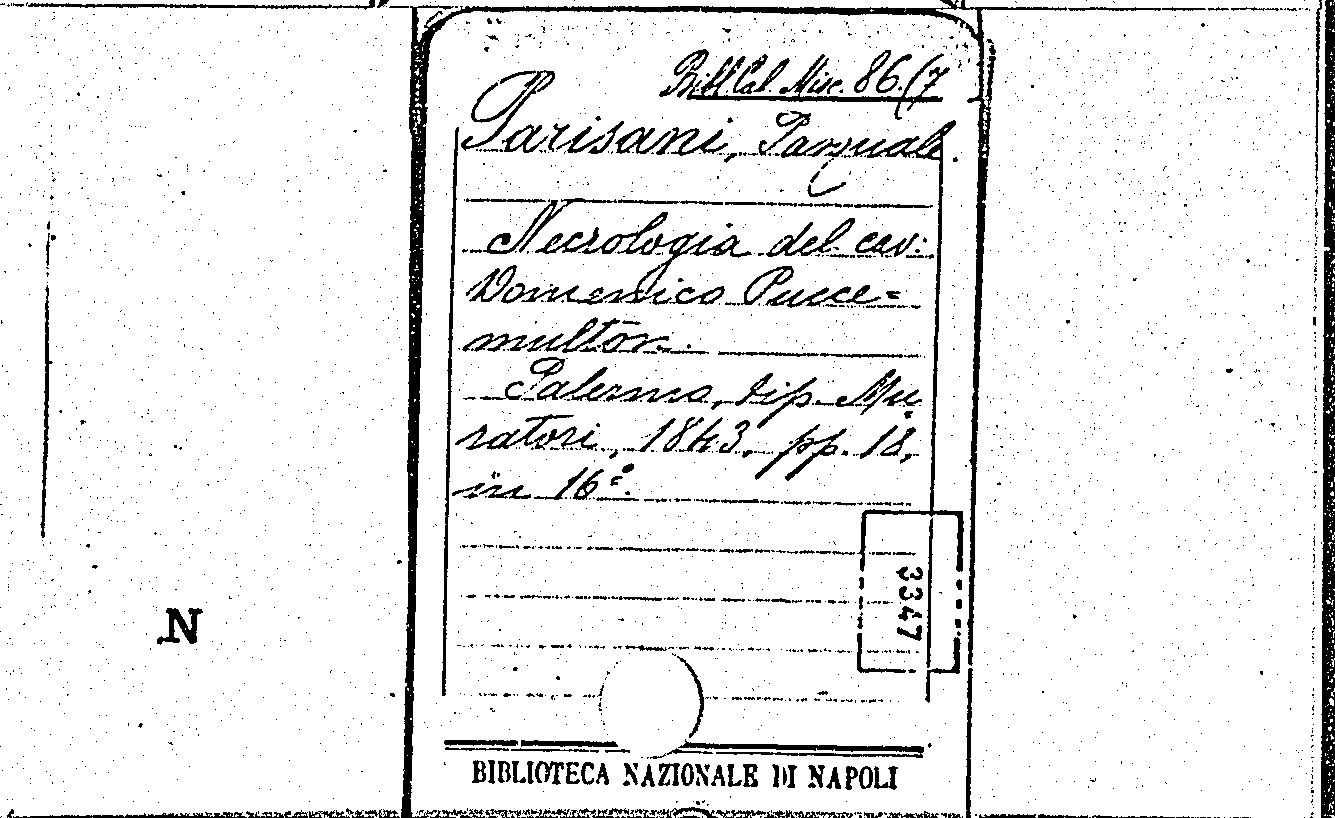 Bibl. Cal. Misc. 86.(7
Parisani, Pasquale.
Necrologia del cav:
Domenico Pucce=
multõr.
Palermo, tip. Mu
ratori, 1843, pp. 18,
in 16º.
3347
N
BIBLIOTECA NAZIONALE DI NAPOLI